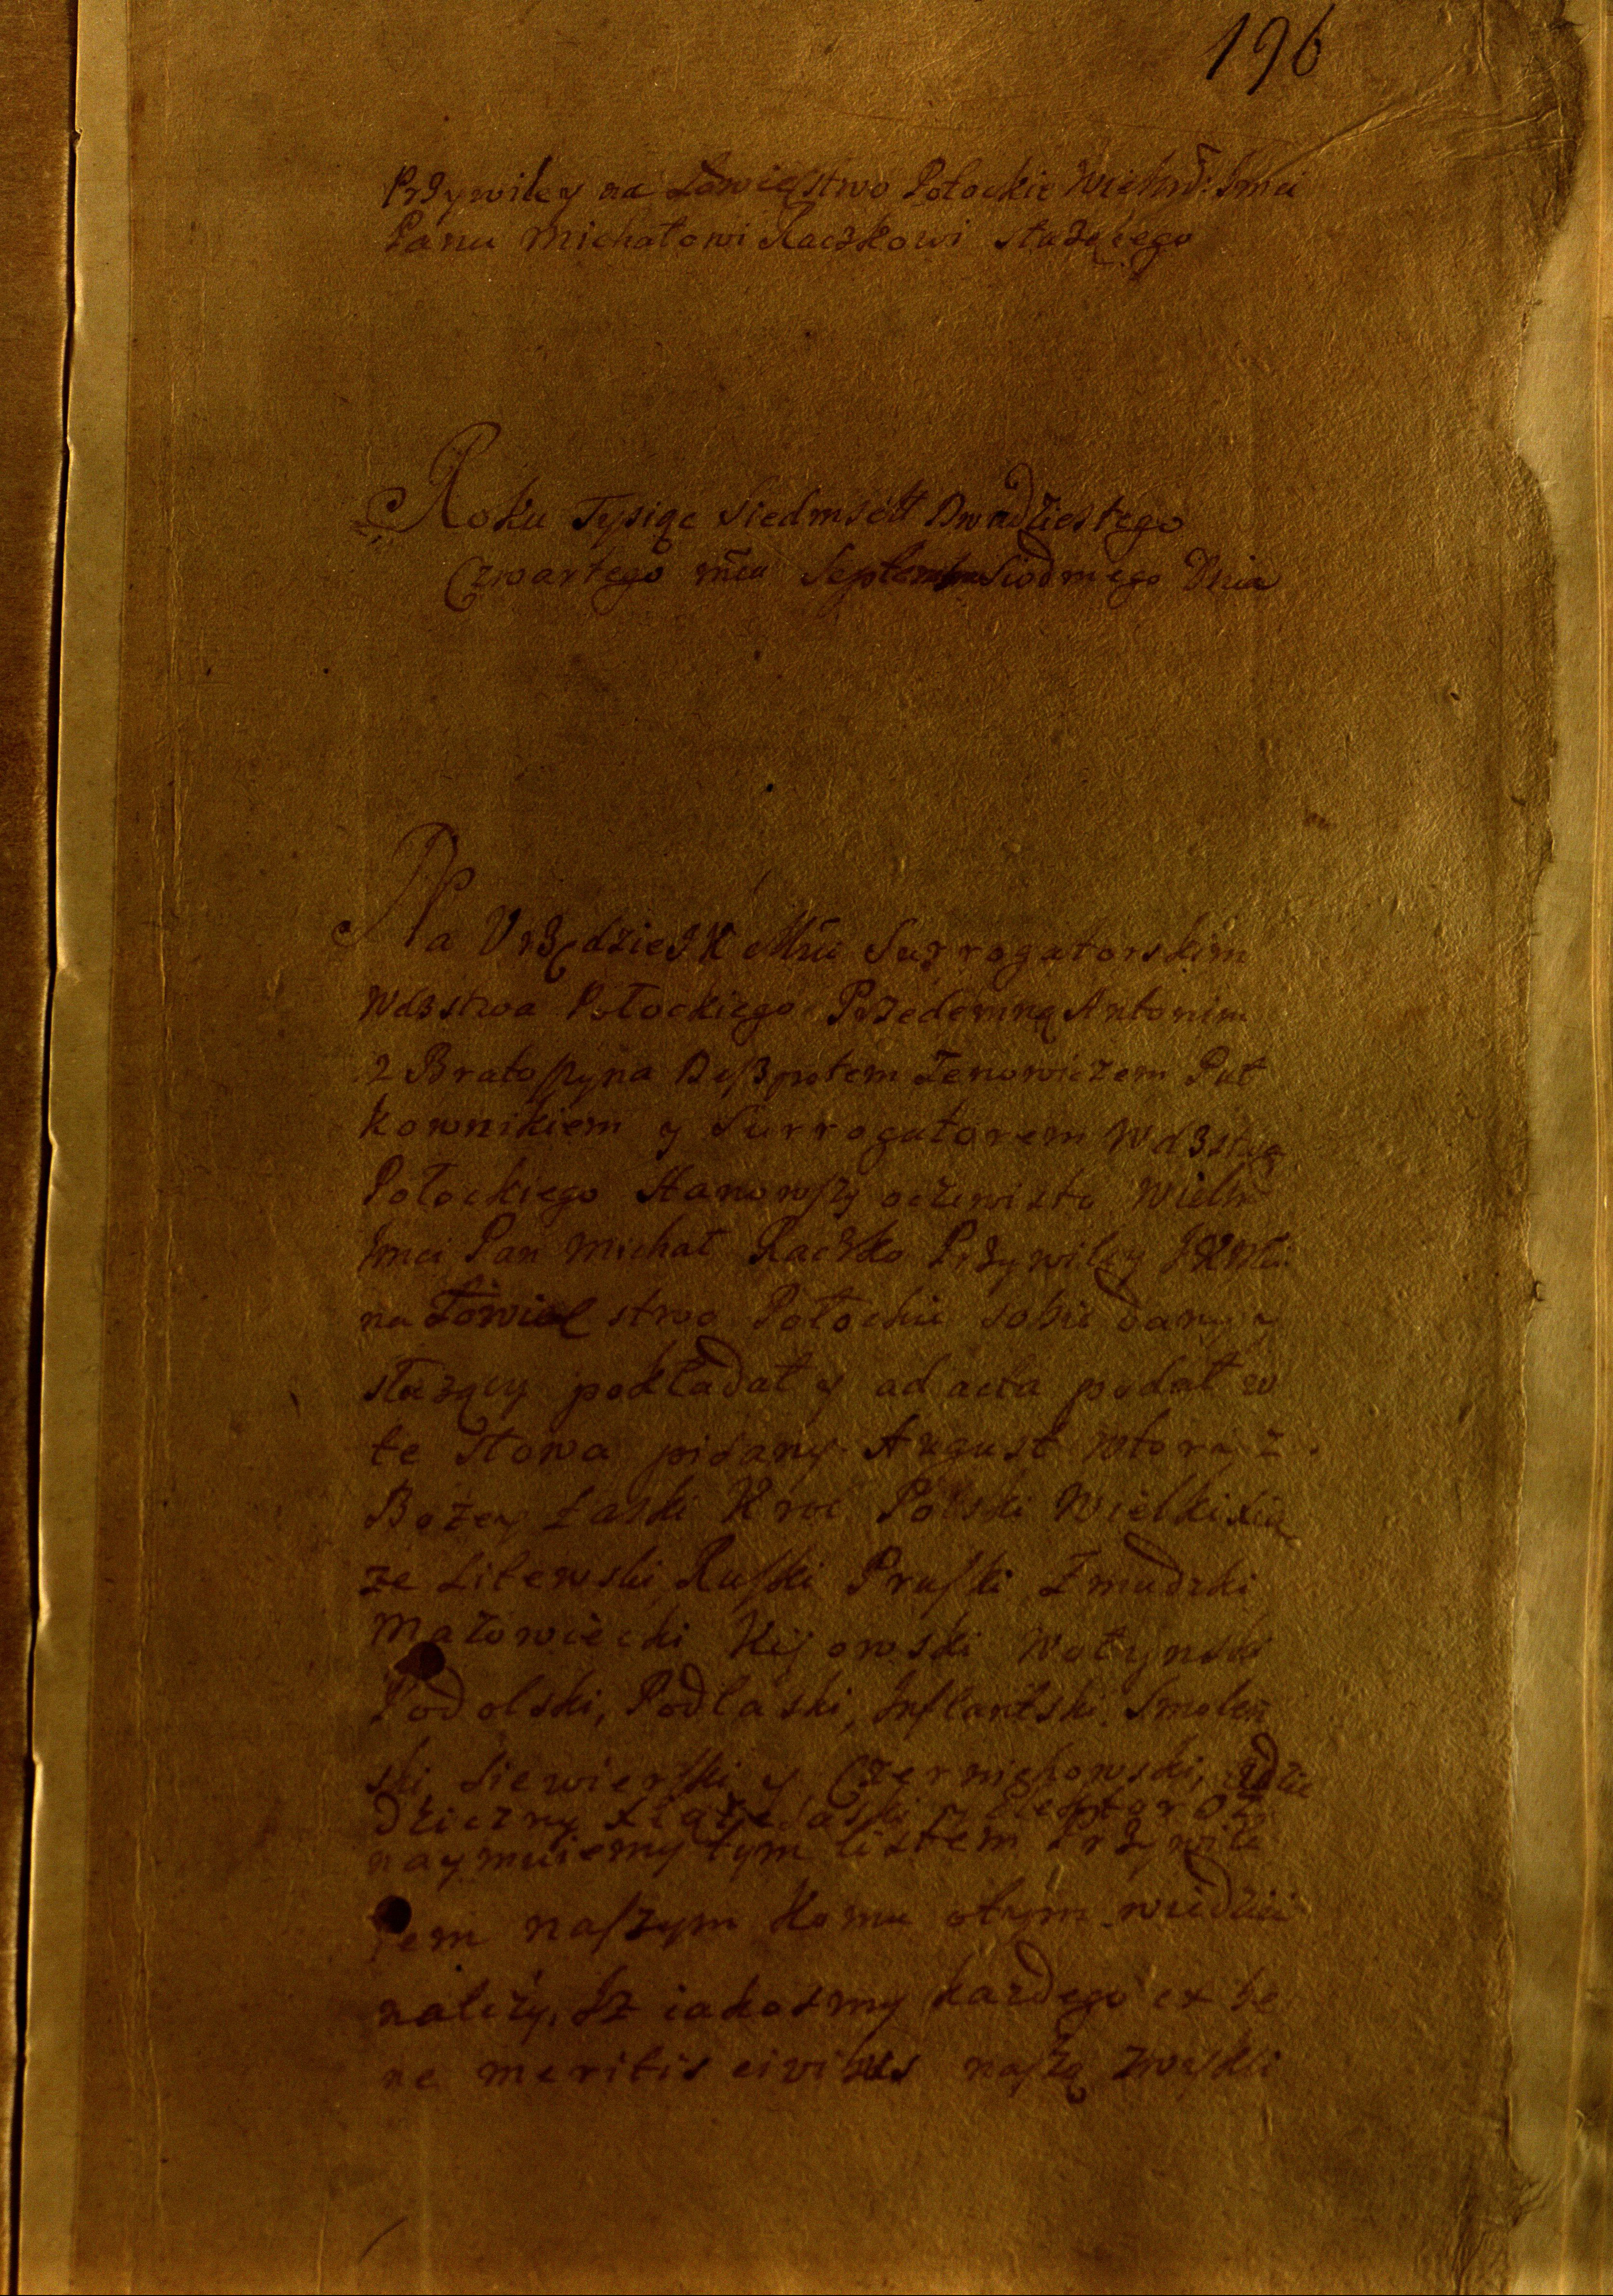 196
Przywiley na Łowięstwo Połockie Wielm: Imci
Panu Michałowi Raczkowi służącego
Roku Tysiąc Siedmset Dwadziestego
Czwartego mca Septembra Siodmego Dnia
Na Vrzędzie J K Mci Surrogatorskim
Wdzstwa Połockiego Przedemną Antonim
z Bratoszyna Deszpotem Zenowiczem Puł
kownikiem y Surrogatorem Wdzstwa
Połockiego Stanowszy oczewisto Wielm
Imci Pan Michał Raczko Przywiley JKMci
na Łowiectwo Połockie sobie dany y
służący pokładał y ad acta podał w
te słowa pisany. August wtory z
Bożey Łaski Krol Polski Wielki Xia
ze Litewski, Ruski Pruski Zmudzki
Mazowiecki Kijowski Wołynski
Podolski, Podlaski, Inflantski, Smolen
ski, Siewierski y Czerniechowski, a dzie
dziczny Xiąże Saski y Elektor Oz
naymuiemy tym listem Przywile
iem naszym komu o tym wiedzieć
należy, Iz iakosmy kazdego ex be
ne meritis civibus naszą zwykli